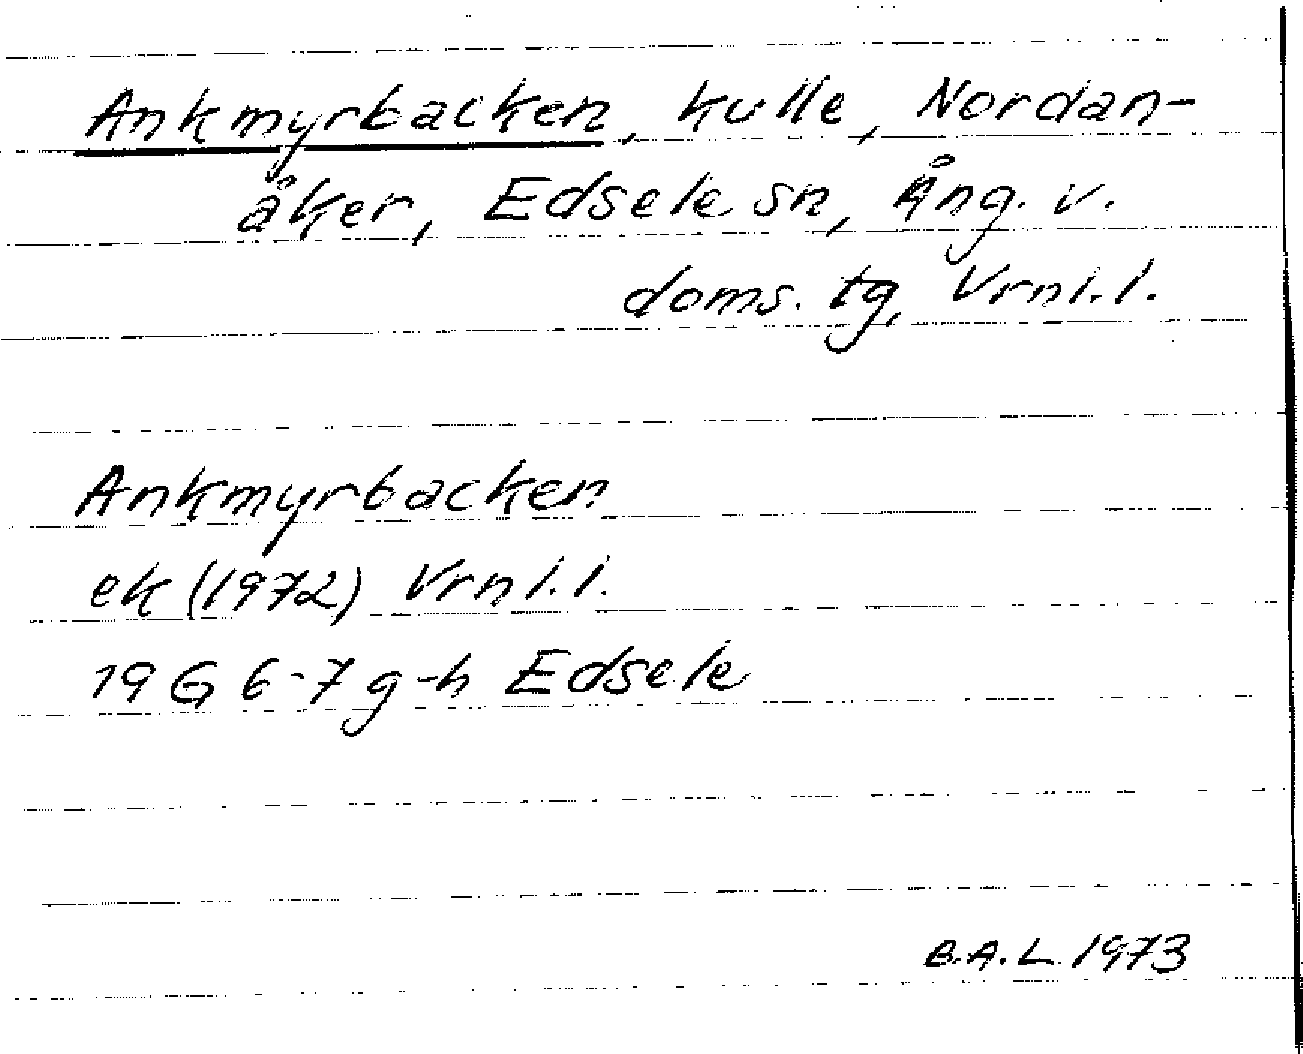 Ankmyrbacken, kulle, Nordan-
åker, Edsele sn, Ång. v.
doms. tg, Vrnl. l.
Ankmyrbacken
ek (1972) Vrnl. l.
19 G 6-7 g-h Edsele
B.A.L. 1973